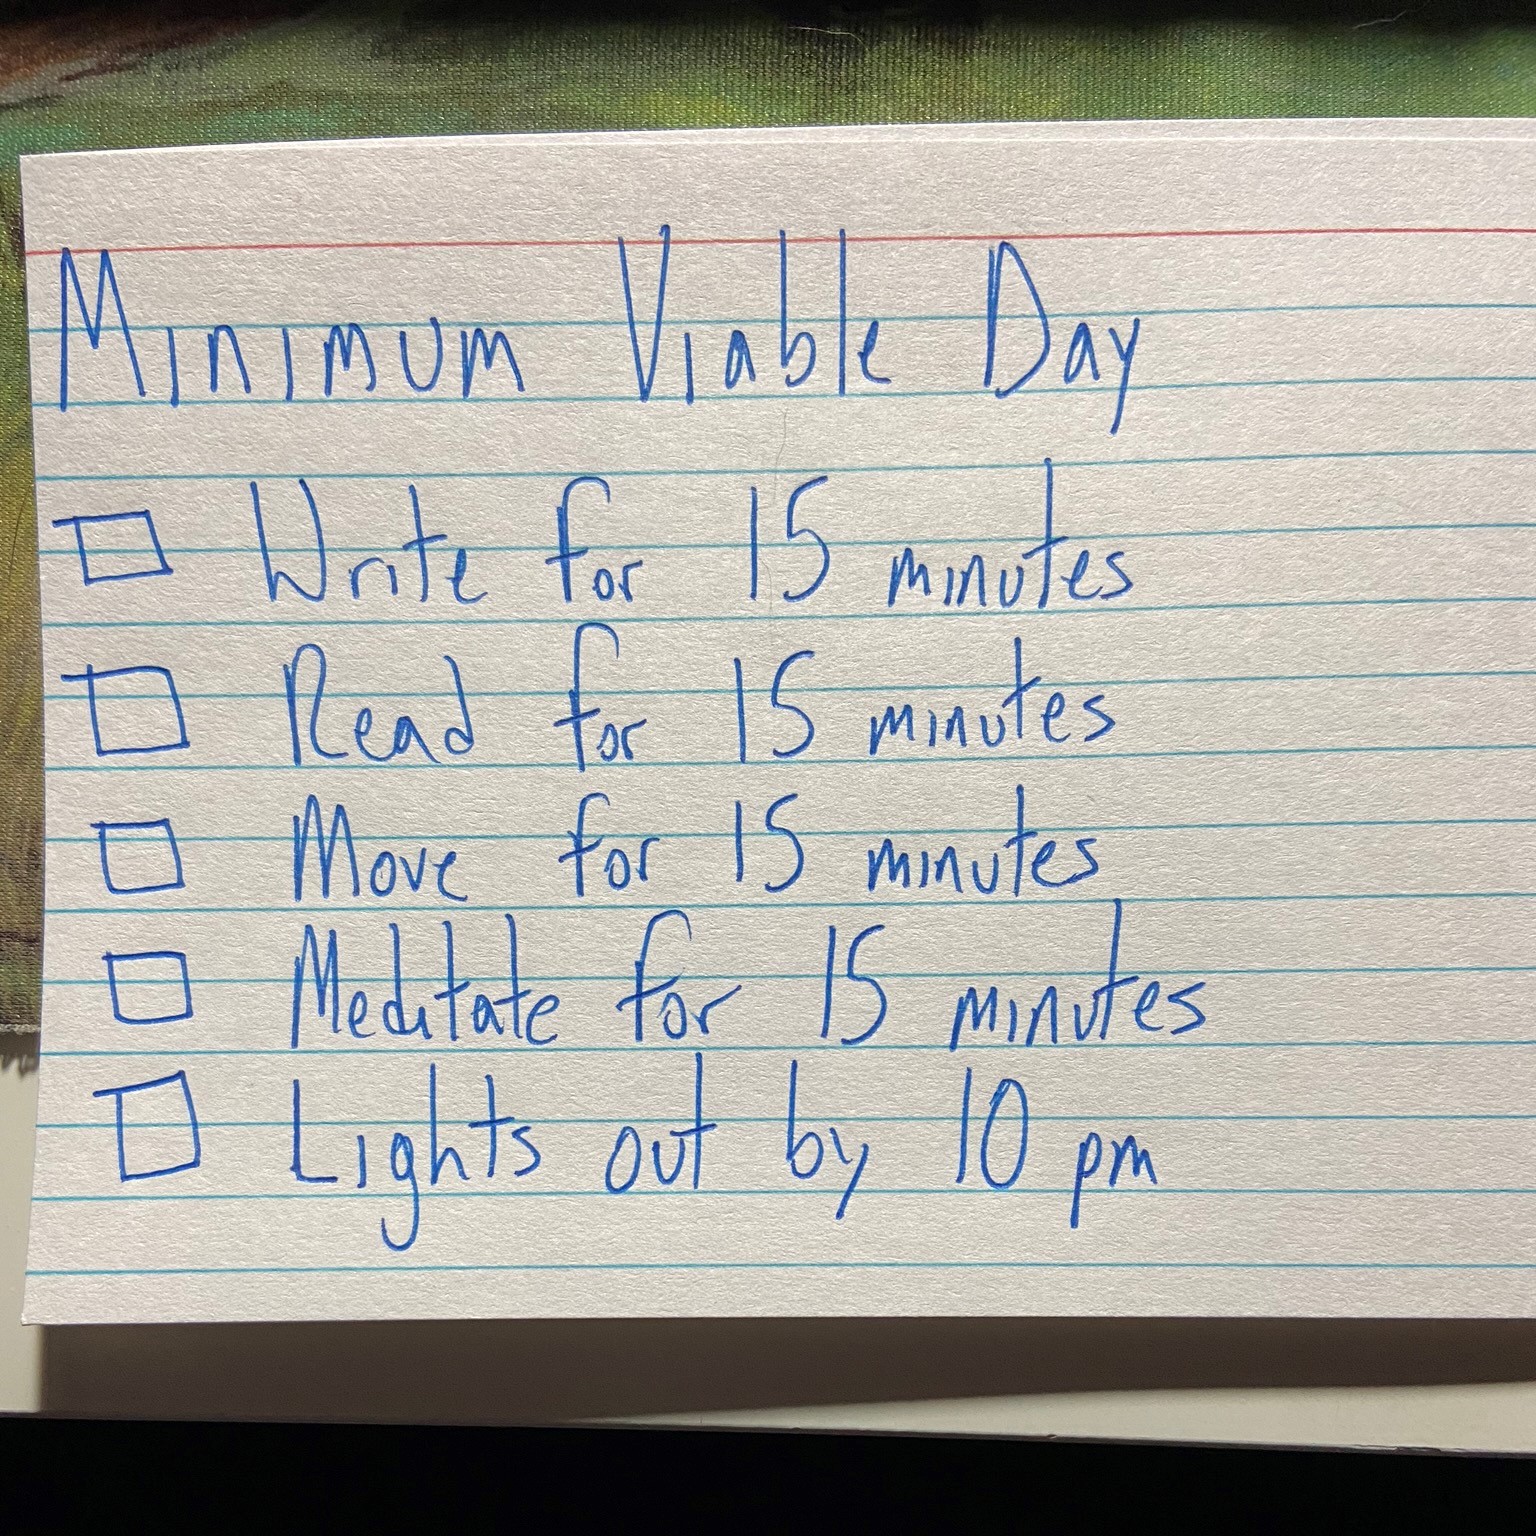 Minimum Viable Day
☐ Write for 15 minutes
☐ Read for 15 minutes
☐ Move for 15 minutes
☐ Meditate for 15 minutes
☐ Lights out by 10 pm